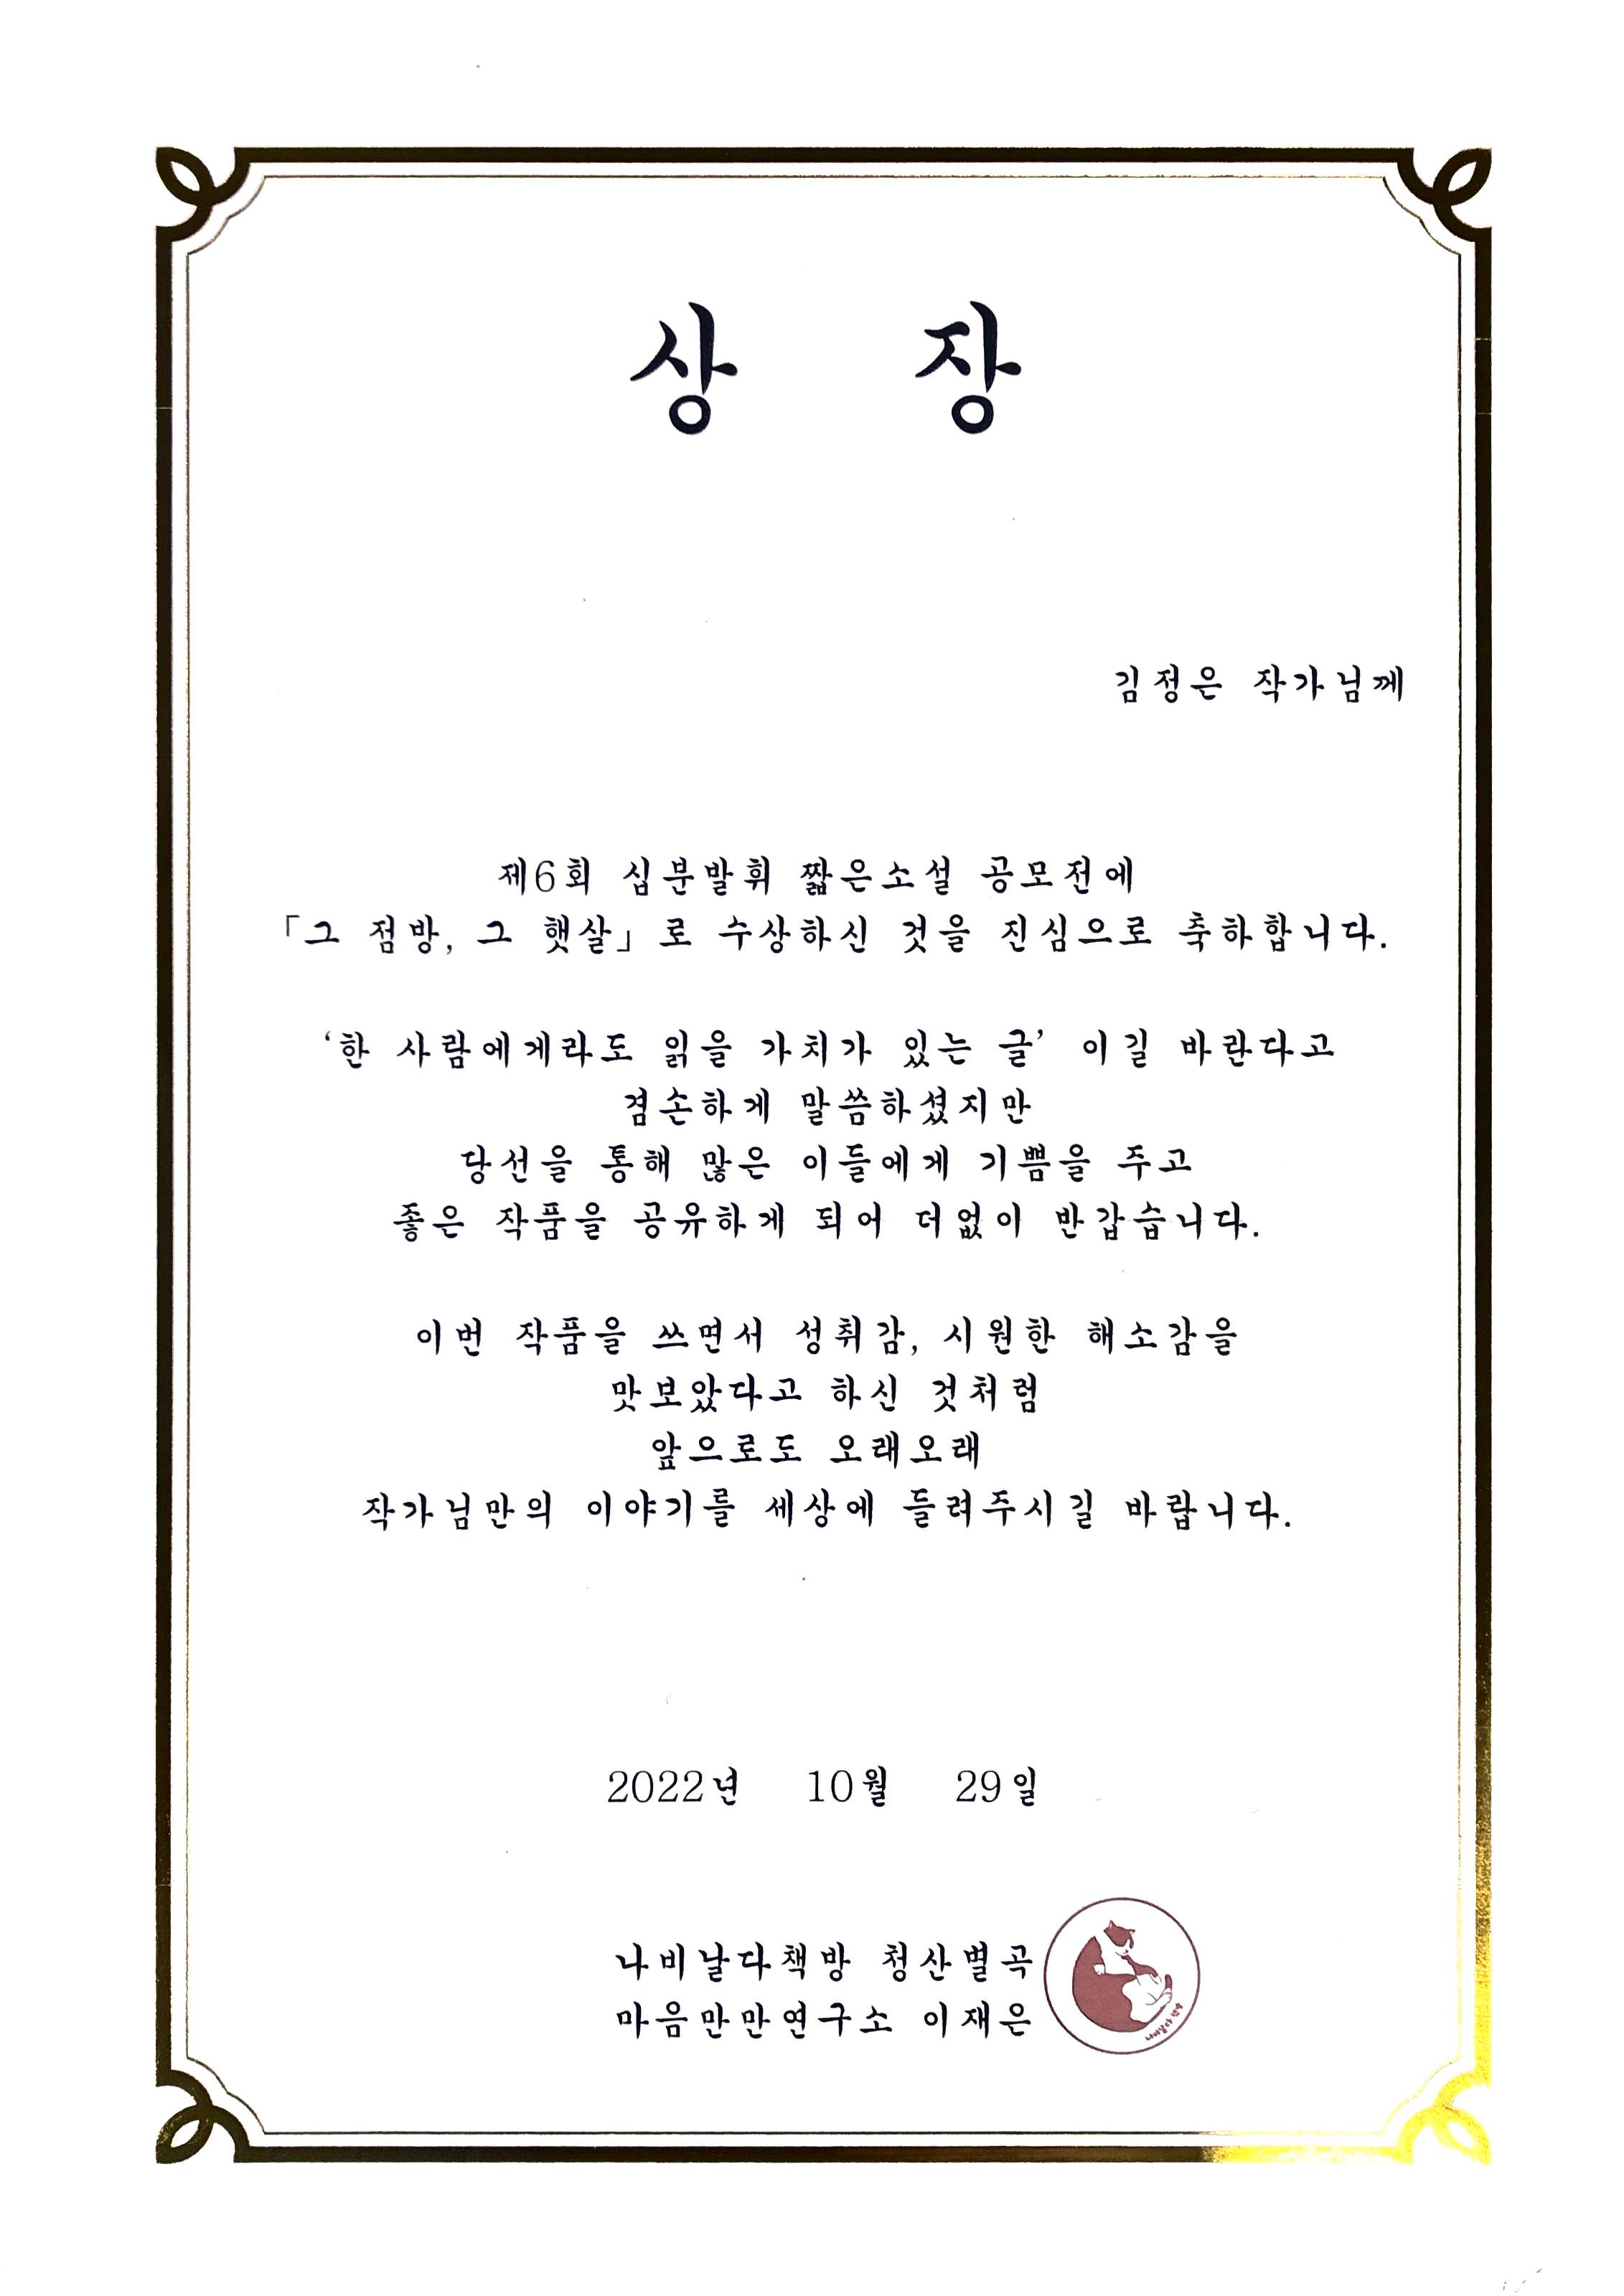 상 장
김정은 작가님께
제6회 십분발휘 짧은소설 공모전에
「그 점방, 그 햇살」로 수상하신 것을 진심으로 축하합니다.
‘한 사람에게라도 읽을 가치가 있는 글’ 이길 바란다고
겸손하게 말씀하셨지만
당선을 통해 많은 이들에게 기쁨을 주고
좋은 작품을 공유하게 되어 더없이 반갑습니다.
이번 작품을 쓰면서 성취감, 시원한 해소감을
맛보았다고 하신 것처럼
앞으로도 오래오래
작가님만의 이야기를 세상에 들려주시길 바랍니다.
2022년 10월 29일
나비날다책방 청산별곡
마음만만연구소 이재은